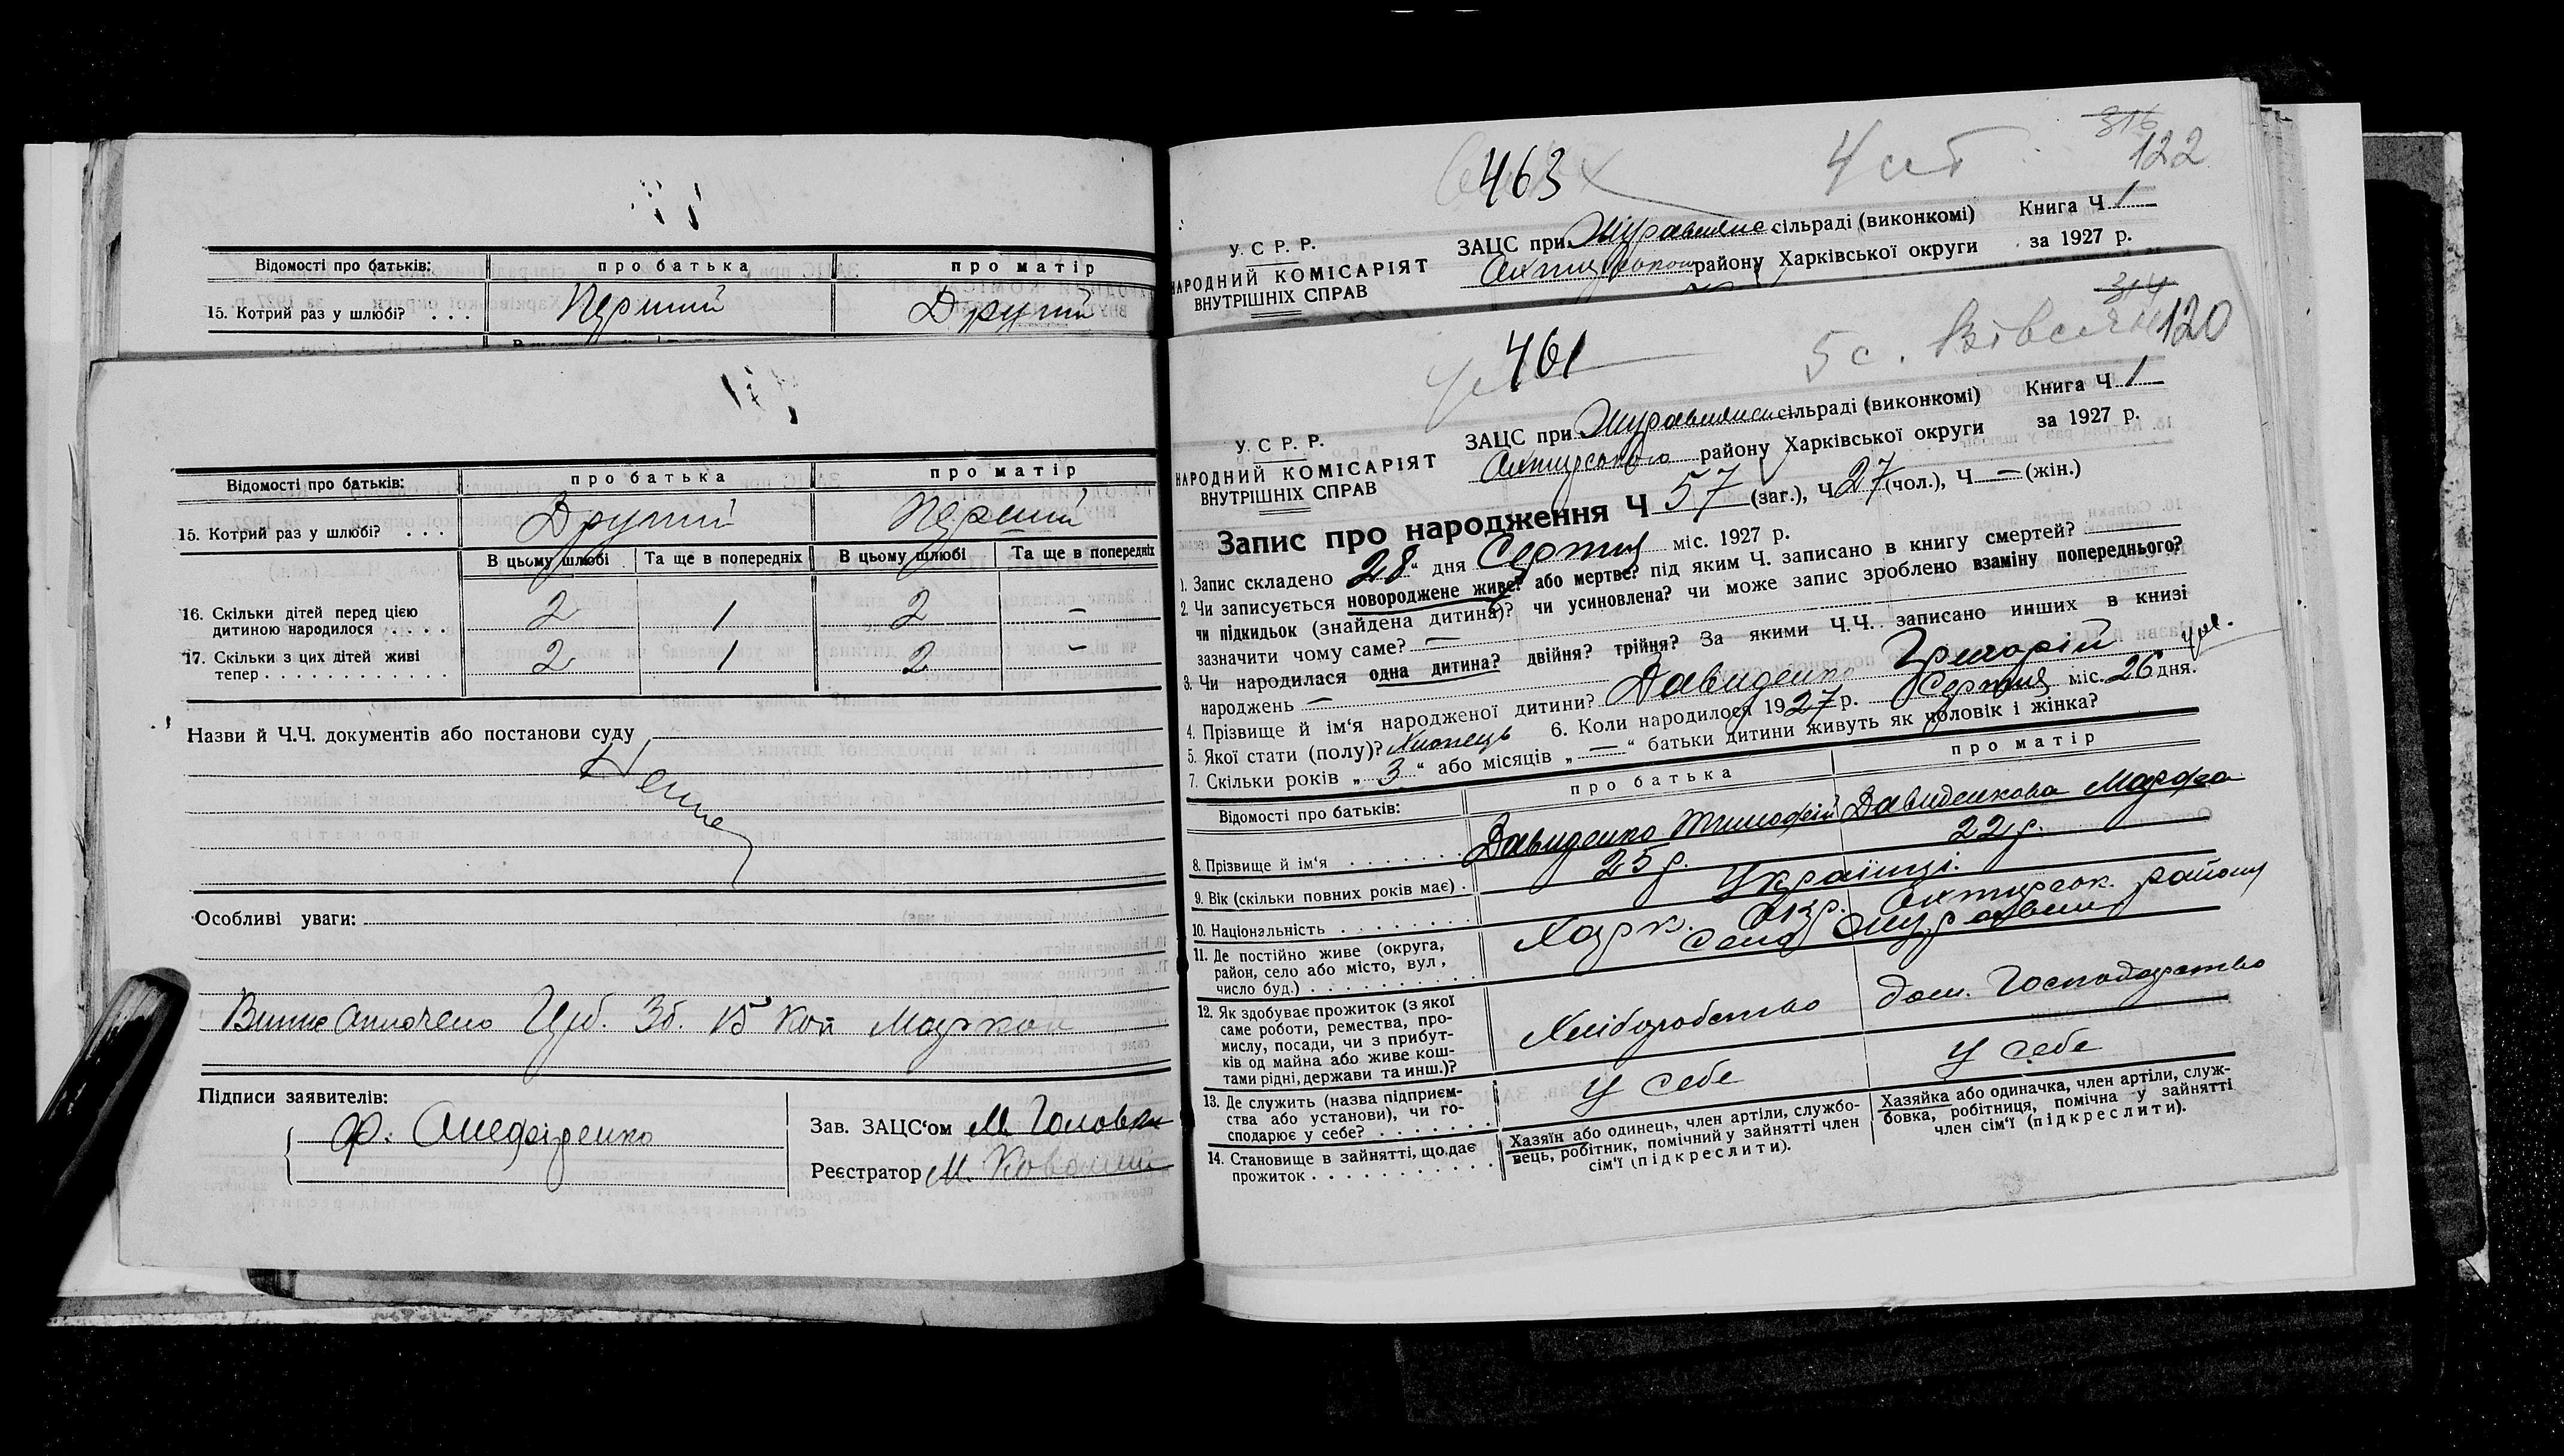 Відомості про батьків: про батька про матір
15. Котрий раз у шлюбі? . . . Перший Другий
Відомості про батьків: про батька про матір
15. Котрий раз у шлюбі? . . . Другий Перший
В цьому шлюбі Та ще в попередніх В цьому шлюбі Та ще в попередніх
16. Скільки дітей перед цією
дитиною народилося . . . . 2 1 2 –
17. Скільки з цих дітей живі
тепер . . . . . . . . . . . . 2 1 2 –
Назви й Ч.Ч. документів або постанови суду
Немає
Особливі уваги:
15 коп
Підписи заявителів:
Ф.
Зав. ЗАЦС'ом М Головко
Реєстратор М.
463
316
122
У. С. Р. Р.
НАРОДНИЙ КОМІСАРІЯТ
ВНУТРІШНІХ СПРАВ
ЗАЦС при Журавлинс. сільраді (виконкомі) Книга Ч 1
району Харківської округи за 1927 р.
461
5 с.
314
120
У. С. Р. Р.
НАРОДНИЙ КОМІСАРІЯТ
ВНУТРІШНІХ СПРАВ
ЗАЦС при сільраді (виконкомі) Книга Ч 1
Охтирського району Харківської округи за 1927 р.
Запис про народження Ч 57 (заг.), Ч 27 (чол.), Ч — (жін.)
1. Запис складено 28 “ дня Серпня міс. 1927 р.
2. Чи записується новороджене живе? або мертве? під яким Ч. записано в книгу смертей?
чи підкидьок (знайдена дитина)? чи усиновлена? чи може запис зроблено взаміну попереднього?
зазначити чому саме? —
3. Чи народилася одна дитина? двійня? трійня? За якими Ч.Ч. записано инших в книзі
народжень —
4. Прізвище й ім‘я народженої дитини? Давиденко Григорій
5. Якої стати (полу)? Хлопець 6. Коли народилося 1927 р. Серпня міс. 26 дня.
7. Скільки років „ 3 “ або місяців „ — “ батьки дитини живуть як чоловік і жінка?
Відомості про батьків: про батька про матір
8. Прізвище й ім‘я . . . . . . . Давиденко Тимофій Давиденкова Марфа
9. Вік (скільки повних років має) . 25 р. 22 р.
10. Національність . . . . . . . Українці.
11. Де постійно живе (округа,
район, село або місто, вул,
число буд.) . . . . . . . . . Харк. окр. Охтирськ. району
село
12. Як здобуває прожиток (з якої
саме роботи, ремества, про-
мислу, посади, чи з прибут-
ків од майна або живе кош-
тами рідні, держави та инш.)? Хліборобство дом. господарство
13. Де служить (назва підприєм-
ства або установи), чи го-
сподарює у себе? . . . . . . . у себе у себе
14. Становище в зайнятті, що дає
прожиток . . . . . . . . . . .
Хазяїн або одинець, член артіли, службо-
вець, робітник, помічний у зайнятті член
сім'ї (підкреслити).
Хазяйка або одиначка, член артіли, служ-
бовка, робітниця, помічна у зайнятті
член сім'ї (підкреслити).